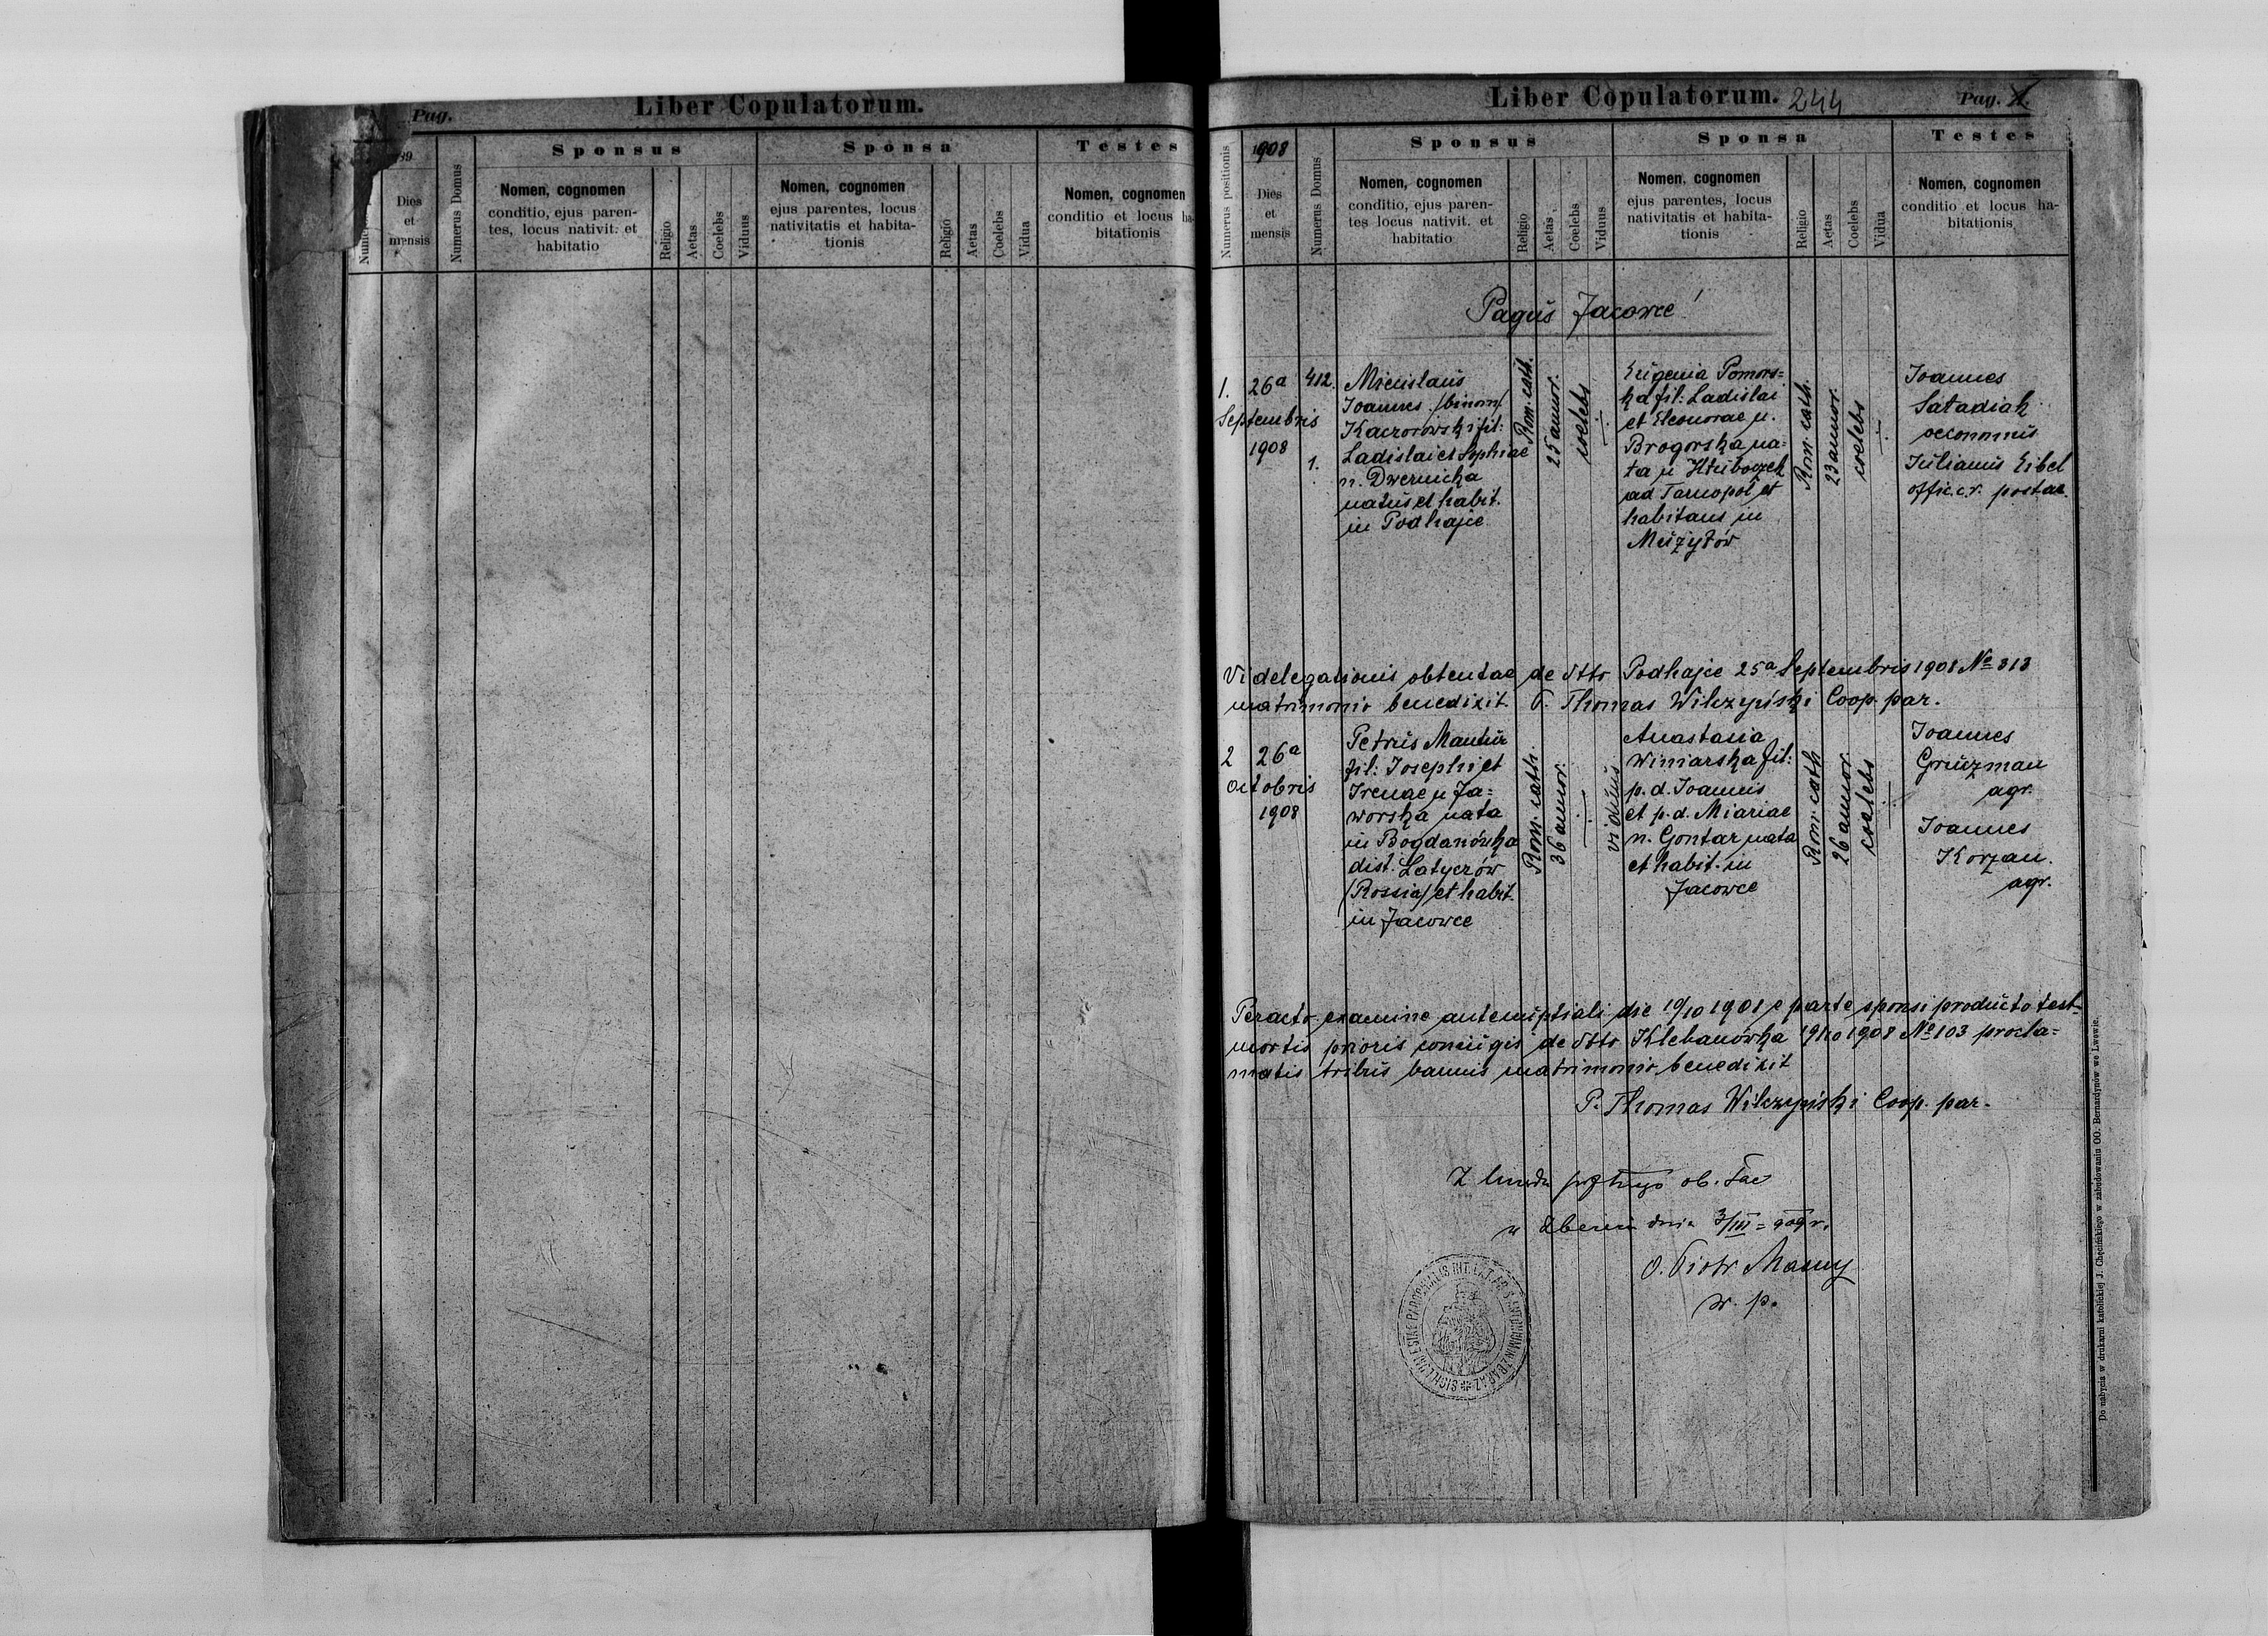 Pag.
Liber Copulatorum.
89
Dies
et
mensis
Numerus Domus
Sponsus
Nomen, cognomen
conditio, ejus paren-
tes, locus nativit. et
habitatio
Religio
Aetas
Coelebs
Viduus
Sponsa
Nomen, cognomen
ejus parentes, locus
nativitatis et habita-
tionis
Religio
Aetas
Coelebs
Vidua
Testes
Nomen, cognomen
conditio et locus ha-
bitationis
Liber Copulatorum. 244
Pag. 1.
Numerus positionis
1908
Dies
et
mensis
Numerus Domus
Sponsus
Nomen, cognomen
conditio, ejus paren-
tes locus nativit. et
habitatio
Religio
Aetas
Coelebs
Viduus
Sponsa
Nomen, cognomen
ejus parentes, locus
nativitatis et habita-
tionis
Religio
Aetas
Coelebs
Vidua
Testes
Nomen, cognomen
conditio et locus ha-
bitationis
Pagus Jacowce!
1.
26a
Septembris
1908
412.
1.
Miecislaus
Joannes /binom/
Kaczorowski fil:
Ladislai et Sophiae
n. Dwernicka
natus et habit.
in Podhajce
Rom. cath.
25 annor.
coelebs
Eugenia Pomors=
ka fil: Ladislai
et Eleonorae n.
Brogorska na=
ta in Hluboczek
ad Tarnopol et
habitans in
Mużyłów
Rom. cath.
23 annor.
coelebs
Joannes
Satadiak
oeconomus
Julianus Eibel
offic. c.r. postae.
Vi delegationis obtentae de dtto Podhajce 25a Septembris 1908 No 313
matrimonio benedixit P. Thomas Wilczyński Coop. par.
2
26a
Octobris
1908
Petrus Mantur
fil: Josephi et
Irenae n Ja=
worska nata
in Bogdanówka
dist. Latyczów
/Rossia/ et habit.
in Jacowce
Rom. cath.
36 annor.
viduus
Anastasia
Winiarska fil:
p. d. Joannis
et p. d. Mariae
n. Gontar nata
et habit. in
Jacowce
Rom. cath
26 annor.
coelebs
Joannes
Gruzman
agr.
Joannes
Korzan.
agr.
Peracto examine antenuptiali die 19/10 1908 e parte sponsi producto test=
mortis prioris conjugis de dtto Klebanówka 19/10 1908 No 103 procla=
matis tribus bannis matrimonio benedixit
P. Thomas Wilczyński Coop. par.
Z urzędu ob. łac
dnia 3/III = 909 r.
O. Piotr
w. p.
Do nabycia w drukarni katolickiej J. Chęcińskiego w zabudowaniu OO. Bernardynów we Lwowie.